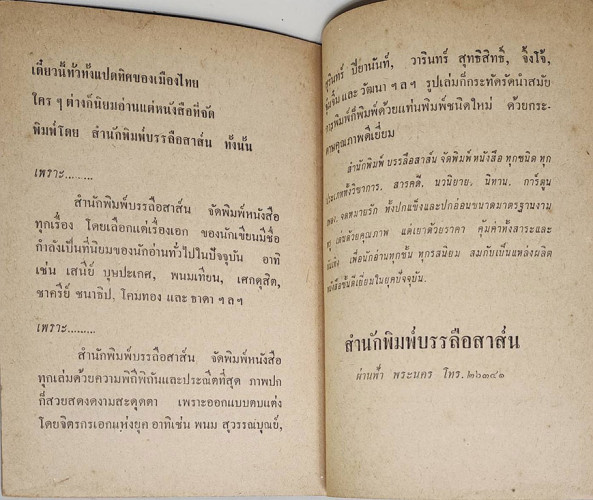 เดี๋ยวนี้ทั่วทั้งแปดทิศของเมืองไทย
ใคร ๆ ต่างก็นิยมอ่านแต่หนังสือที่จัด
พิมพ์โดย สำนักพิมพ์บรรลือสาส์น ทั้งนั้น
เพราะ.........
สำนักพิมพ์บรรลือสาส์น จัดพิมพ์หนังสือ
ทุกเรื่อง โดยเลือกแต่เรื่องเอก ของนักเขียนมีชื่อ
กำลังเป็นที่นิยมของนักอ่านทั่วไปในปัจจุบัน อาทิ
เช่น เสนีย์ บุษปะเกศ, พนมเทียน, เศกดุสิต,
ชาครีย์ ชนาธิป, โคมทอง และ ธาดา ฯ ล ฯ
เพราะ.........
สำนักพิมพ์บรรลือสาส์น จัดพิมพ์หนังสือ
ทุกเล่มด้วยความพิถีพิถันและประณีตที่สุด ภาพปก
ก็สวยสดงดงามสะดุดตา เพราะออกแบบตบแต่ง
โดยจิตรกรเอกแห่งยุค อาทิเช่น พนม สุวรรณบุณย์,
สุรินทร์ ปิยานันท์, วารินทร์ สุทธิสิทธิ์, จิ้งโจ้,
และ วัฒนา ฯ ล ฯ รูปเล่มก็กระทัดรัดนำสมัย
การพิมพ์ก็พิมพ์ด้วยแท่นพิมพ์ชนิดใหม่ ด้วยกระ-
ดาษคุณภาพดีเยี่ยม
สำนักพิมพ์ บรรลือสาส์น จัดพิมพ์ หนังสือ ทุกชนิด ทุก
ประเภททั้งวิชาการ, สารคดี, นวนิยาย, นิทาน, การ์ตูน
เพลง, จดหมายรัก ทั้งปกแข็งและปกอ่อนขนาดมาตรฐานงาน
ด้วยคุณภาพ แต่เยาด้วยราคา คุ้มค่าทั้งสาระและ
บันเทิง เพื่อนักอ่านทุกชั้น ทุกรสนิยม สมกับเป็นแหล่งผลิต
หนังสือชั้นดีเยี่ยมในยุคปัจจุบัน.
สำนักพิมพ์บรรลือสาส์น
ผ่านฟ้า พระนคร โทร. ๒๖๓๔๑